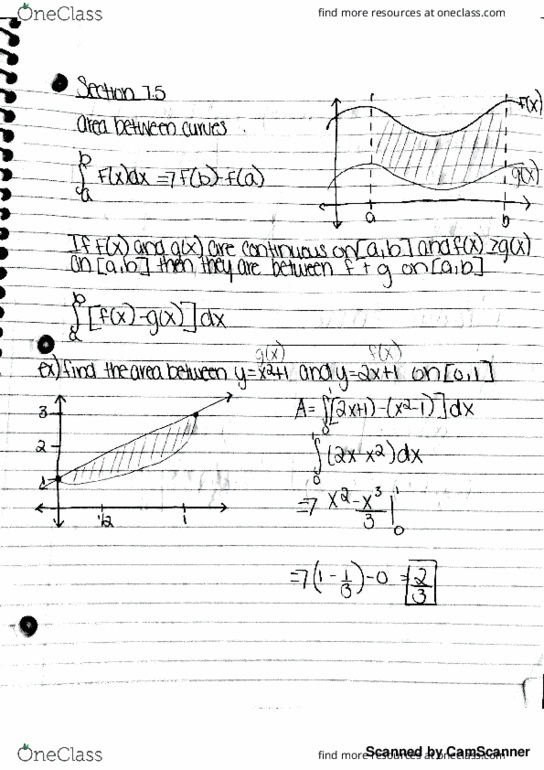 OneClass
find more resources at oneclass.com
Section 7.5
area between curves
f(x)
g(x)
a
b
∫ₐᵇ f(x)dx => f(b)-f(a)
If f(x) and g(x) are continuous on [a,b] and f(x) ≥ g(x)
on [a,b] then they are between f + g on [a,b]
∫ₐᵇ [f(x)-g(x)] dx
g(x) f(x)
ex) find the area between y=x²+1 and y=2x+1 on [0,1]
3
2
1
1/2
1
A= ∫₀¹ [(2x+1)-(x²-1)] dx
∫₀¹ (2x-x²)dx
=> x² - x³/3 |₀¹
=> (1 - 1/3) - 0 = 2/3
OneClass
find more resources at oneclass.com
Scanned by CamScanner